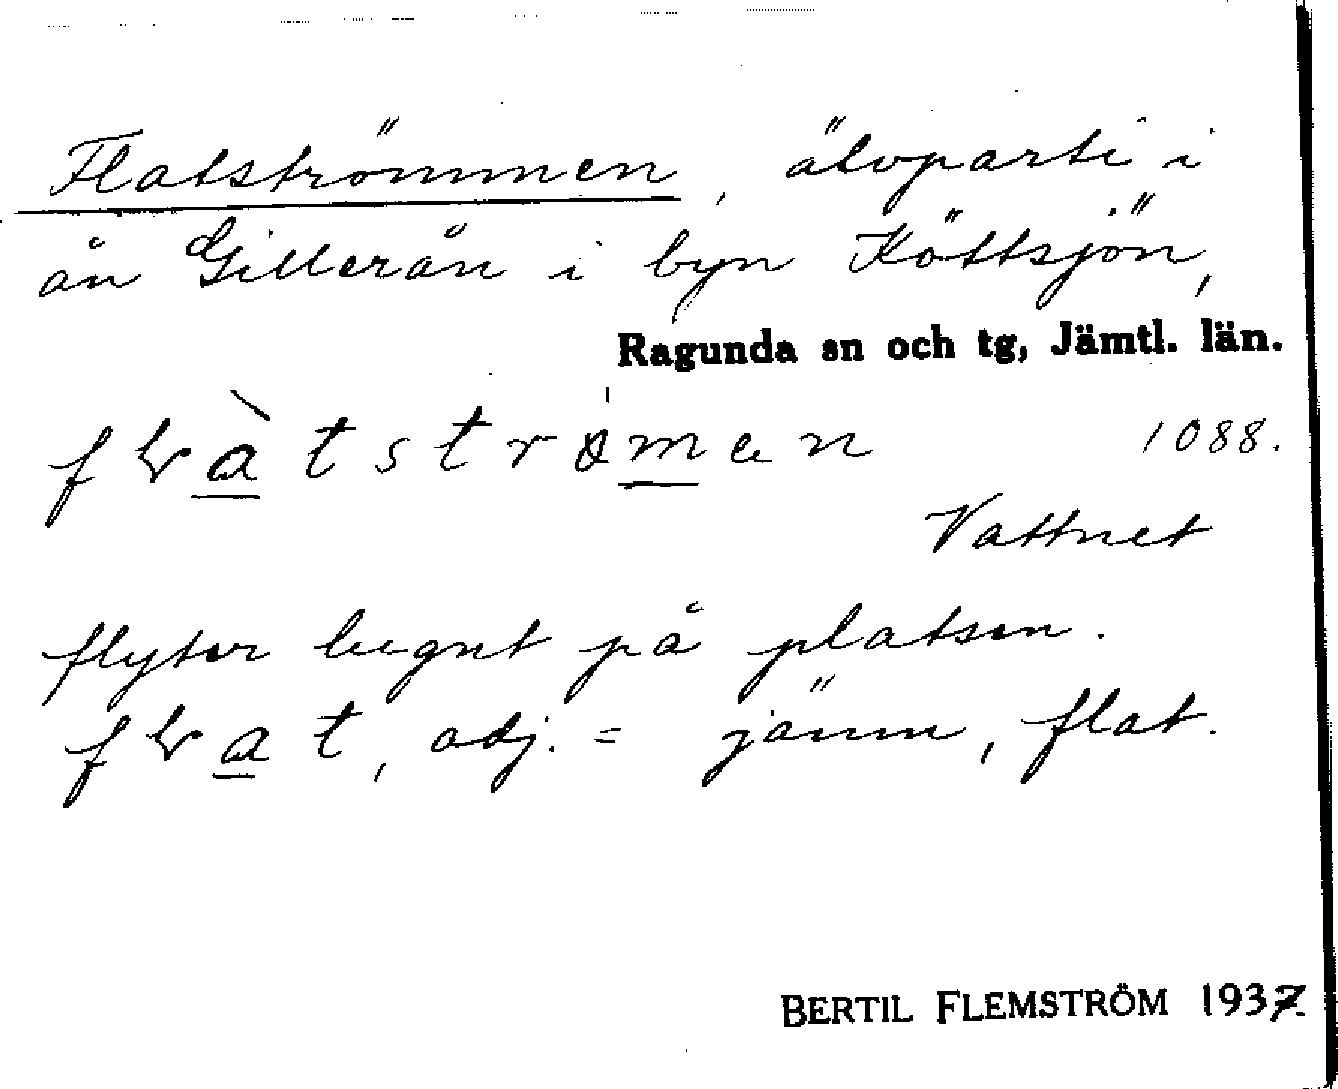 Flatströmmen, älvparti i
ån Gillerån i byn Köttsjön,
Ragunda sn och tg, Jämtl. län.
1088.
Vattnet
flyter lugnt på platsen.
adj. = jämn, flat.
BERTIL FLEMSTRÖM 1937